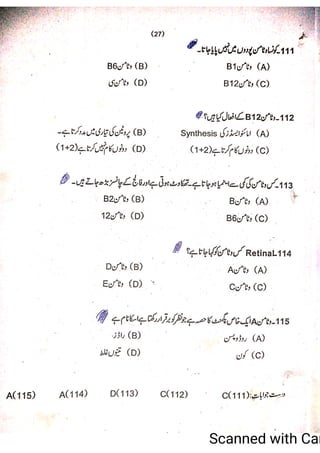 (27)
111۔ کونسا وٹامن پودوں میں نہیں پایا جاتا۔
(A) وٹامن B1 (B) وٹامن B6
(C) وٹامن B12 (D) وٹامن ڈی
112۔ وٹامن B12 کے افعال کیا ہیں؟
(A) امائنوایسڈز کی Synthesis (B) پروٹین کی تیاری میں مدد کرتا ہے۔
(C) دونوں کام کرتا ہے (1+2) (D) دونوں کام نہیں کرتا ہے (1+2)
113۔ کس وٹامن کی کمی سے انیمیا ہو جاتا ہے۔ تھکاوٹ ہوتی ہے اور فالج کے چانسز بڑھ جاتے ہیں۔
(A) وٹامن B (B) وٹامن B2
(C) وٹامن B6 (D) وٹامن 12
114۔ Retinal کس وٹامن کو کہا جاتا ہے؟
(A) وٹامن A (B) وٹامن D
(C) وٹامن C (D) وٹامن E
115۔ وٹامن A ایک خاص پگمنٹ کا حصہ ہے جو نظر کو برقرار رکھتا ہے اسکا نام ہے
(A) روڈوپسن (B) راڈز
(C) کون (D) تینوں غلط
درست جوابات: C(111) C(112) D(113) A(114) A(115)
Scanned with Ca